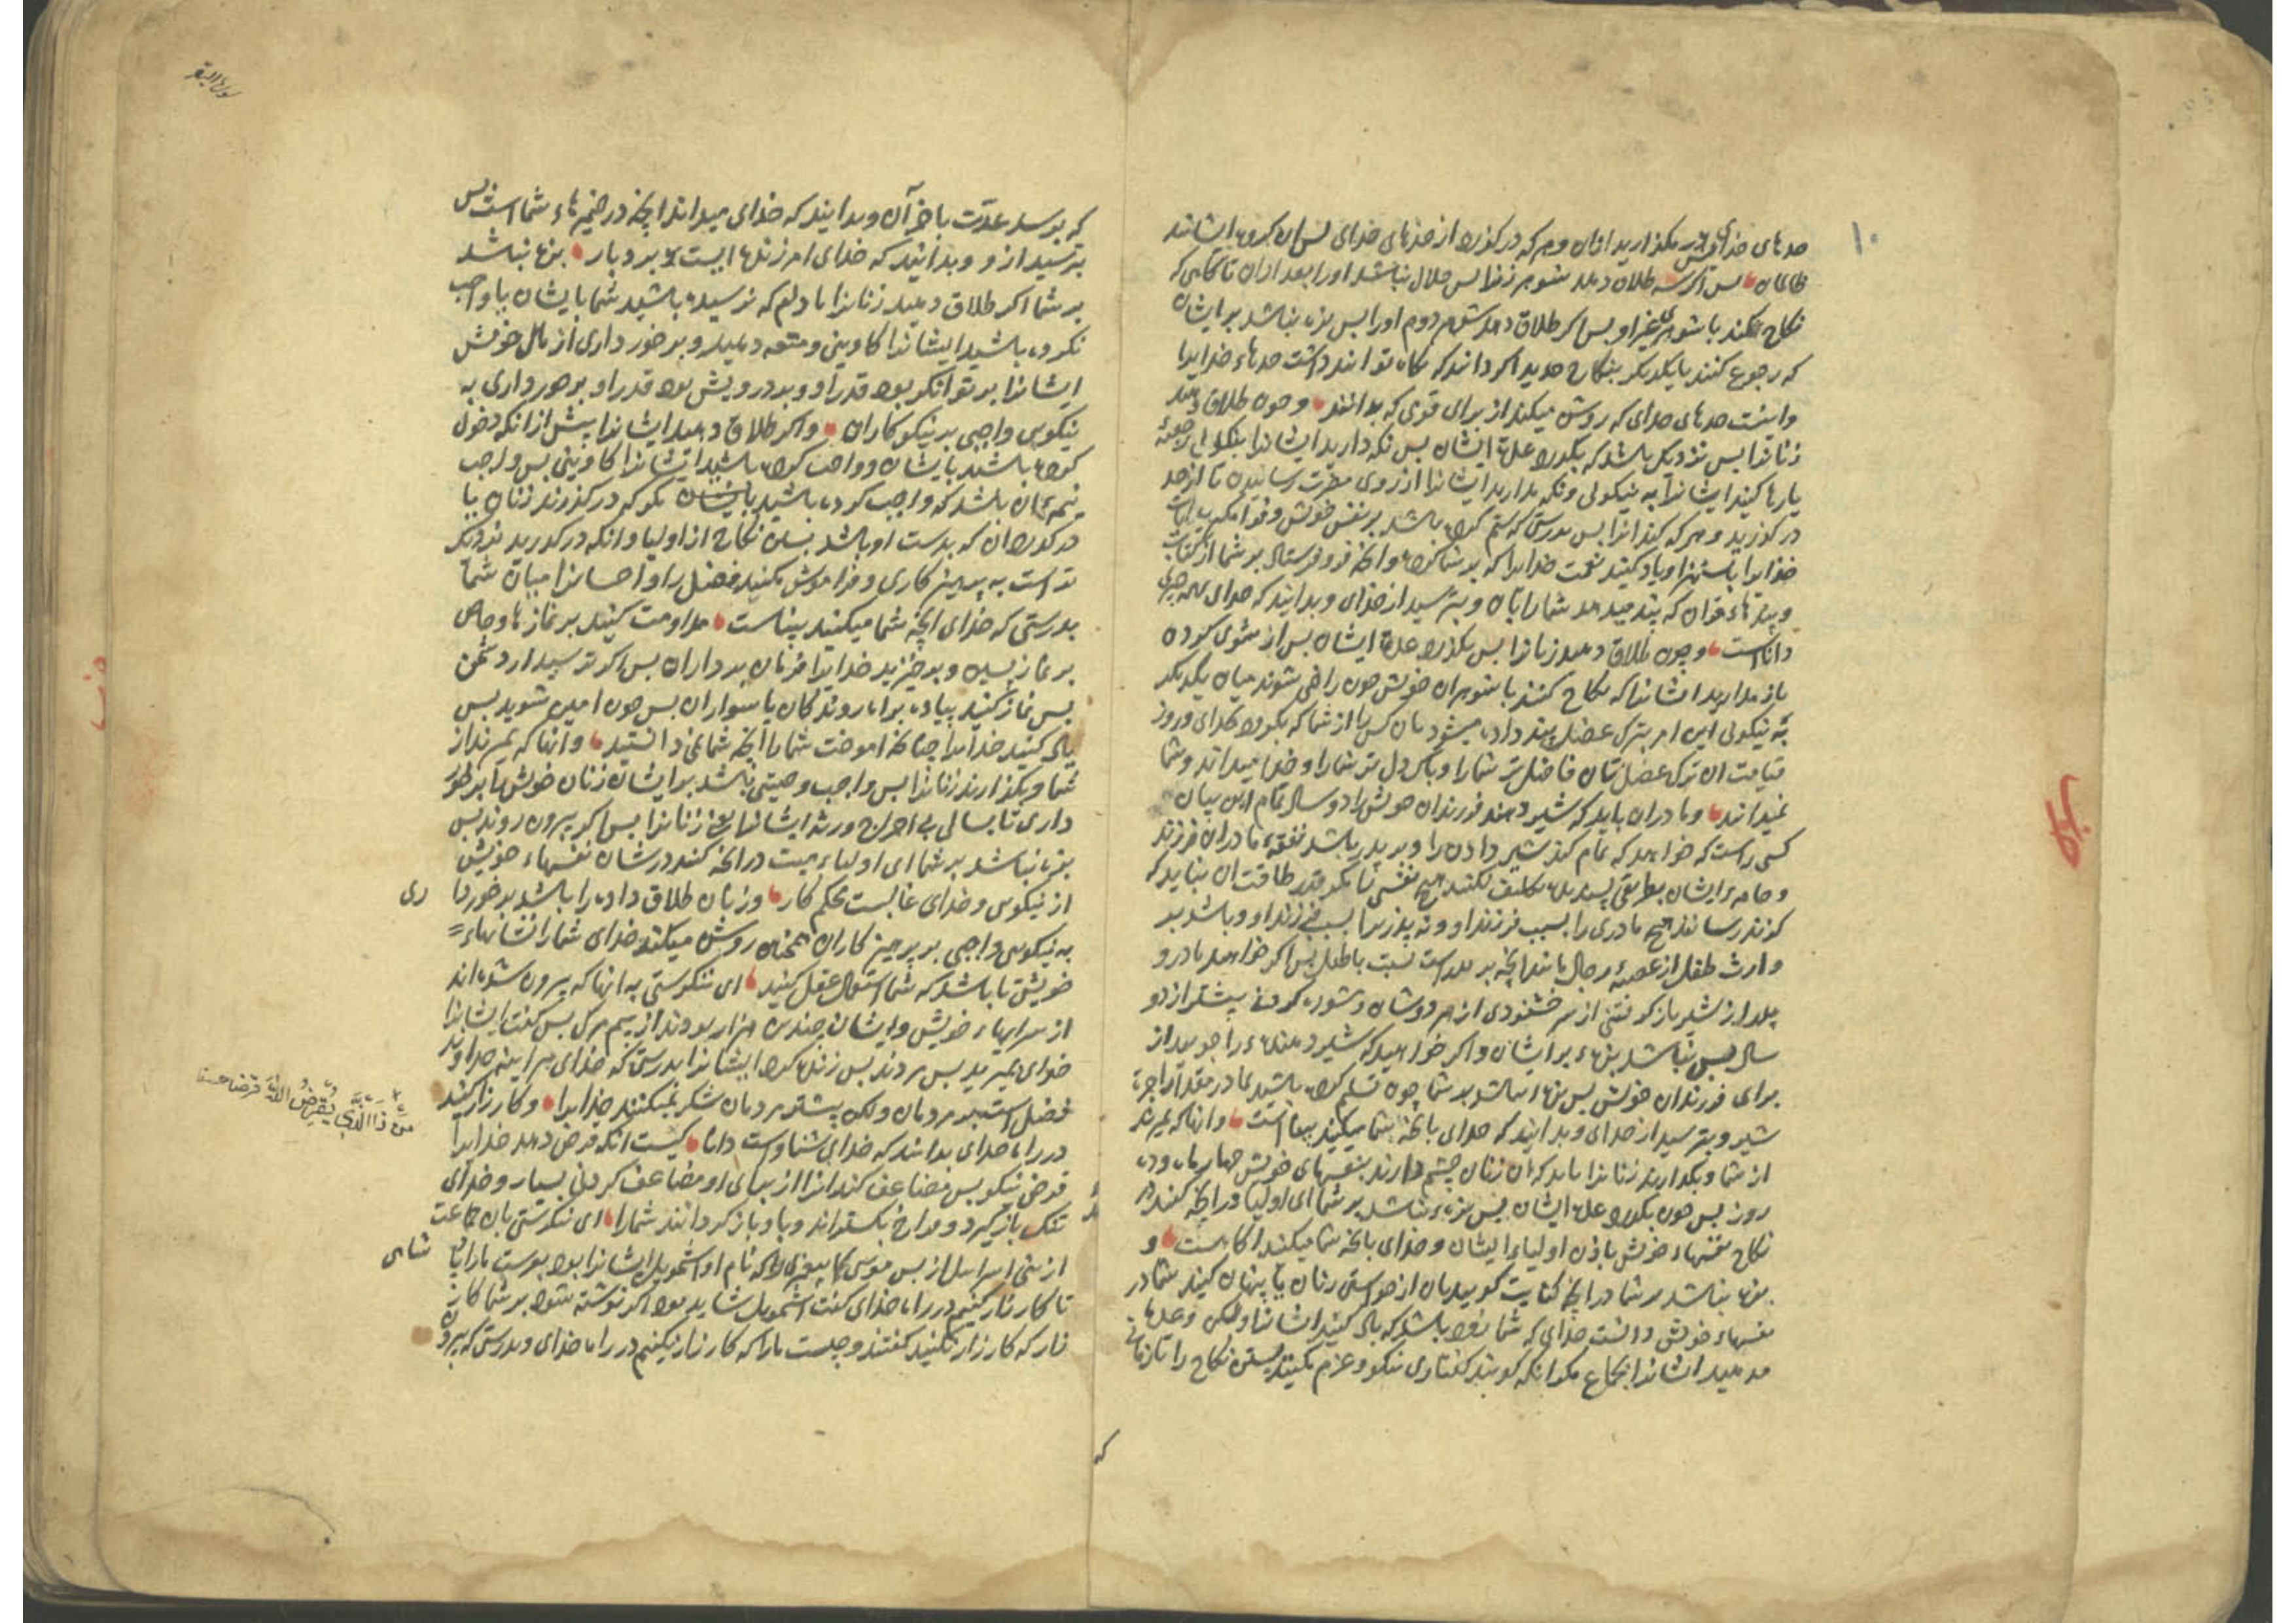 ١٠
حدهای خدای پس مگذارید ازان و هر که درگذرد از حدهای خدای پس ان گروه ایشانند
ظالمان پس اگر سه طلاق دهد شوهر زنرا پس حلال نباشد اورا بعد ازان تا گاهی که
نکاح کند با شوهری غیر او پس اگر طلاق دهدش شوهر دوم اورا پس بزه نباشد بر ایشان
که رجوع کنند بایکدیگر بنکاح جدید اگر دانند که نگاه توانند داشت حدهاء خدایرا
واینست حدهای خدای که روشن میکند از برای قومی که بدانند و چون طلاق دهید
زنانرا پس نزدیک باشد که بگذرد عدة ایشان پس نگه دارید ایشانرا بنیکویی رجعة
یا رها کنید ایشانرا به نیکوئی و نگه مدارید ایشانرا از روی مضرت رسانیدن تا از حد
درگذرید و هر که کند انرا پس بدرستی که ستم کرده باشد بر نفس خویش و فرا مگیرید ایات
خدایرا باستهزا و یاد کنید نعمت خدایرا که بر شما کرده و انچه فرو فرستاد بر شما از کتاب
و پندهاء قران که پند میدهد شمارا بان و بترسید از خدای و بدانید که خدای بهمه چیزی
داناست و چون طلاق دهید زنانرا پس بگذرد عدة ایشان پس از شوی کردن
باز مدارید ایشانرا که نکاح کنند با شوهران خویش چون راضی شوند میان یکدیگر
به نیکوئی این امر بترک عضل پند داده میشود بان کس را از شما که بگرود بخدای و روز
قیامت ان ترک عضل تان فاضل تر شمارا و پاک دل تر شمارا و خدا میداند و شما
نمیدانید و مادران باید که شیر دهند فرزندان خویش را دو سال تمام این بیان
کسی راست که خواهد که تمام کند شیر دادن را و بر پدر باشد نفقهٔ مادران فرزند
و جامه ایشان بطریق پسندیده تکلیف نکنند هیچ نفسی را مگر قدر طاقت ان نباید که
گزند رسانند هیچ مادری را بسبب فرزند او و نه پدر را بسبب فرزند او و باشد بر
وارث طفل از عصبهٔ رجال مانند انچه بر پدر است نسبت با طفل پس اگر خواهند مادر و
پدر از شیر باز گرفتن از سر خشنودی از هر دوشان و شوره کردن پیشتر از دو
سال پس نباشد بزه بر ایشان و اگر خواهید که شیر دهنده را جویید از
برای فرزندان خویش پس بزه نباشد بر شما چون تسلیم کرده باشید بمادر مقدار اجرة
شیر و بترسید از خدای و بدانید که خدای بانچه شما میکنید بیناست و انها که بمیرند
از شما و بگذارند زنانرا باید که ان زنان چشم دارند بنفسهای خویش چهار ماه و ده
روز پس چون بگذرد عدة ایشان پس بزه نباشد بر شما ای اولیا در انچه کنند در
نکاح نفسهاء خویش باذن اولیاء ایشان و خدای بانچه شما میکنید اگاهست و
بزه نباشد بر شما در انچه کنایت گویید بان از خواستن زنان یا پنهان کنید شما در
نفسهاء خویش دانست خدای که شما زود باشد که یاد کنید ایشانرا ولکن وعده
مدهید ایشانرا بجماع مگر انکه گویند گفتاری نیکو و عزم مکنید بستن نکاح را تا زمانی
که
سورة البقر
که برسد عدّت باخر آن و بدانید که خدای میداند انچه در ضمیرهاء شماست پس
بترسید ازو و بدانید که خدای امرزنده ایست بردبار بزه نباشد
بر شما اگر طلاق دهید زنانرا مادام که نرسیده باشید شما بایشان یا واجب
نکرده باشید ایشانرا کاوینی و متعه دهید و برخورداری از مال خویش
ایشانرا بر توانگر بود قدر او و بر درویش بود قدر او برخورداری به
نیکویی واجبی بر نیکوکاران و اگر طلاق دهید ایشانرا پیش ازانکه دخول
کرده باشید بایشان و واجب کرده باشید ایشانرا کاوینی پس واجب
نیمهٔ ان باشد که واجب کرده باشید بایشان مگر که درگذرند زنان یا
درگذرد ان که بدست او باشد بستن نکاح از اولیا و انکه درگذرید نزدیک
تر است به پرهیزکاری و فراموش مکنید فضل را و احسانرا میان شما
بدرستی که خدای انچه شما میکنید بیناست مداومت کنید بر نمازها و خاص
بر نماز پسین و برخیزید خدایرا فرمان برداران پس اگر ترسید از دشمن
پس نماز کنید پیاده براه روندگان یا سواران پس چون امین شوید پس
یاد کنید خدایرا چنانچه اموخت شمارا انچه شما نمی دانستید و انها که بمیرند از
شما و بگذارند زنانرا پس واجب وصیتی باشد بر ایشان زنان خویش را برخور
داری تا بسالی بی اخراج ورثه ایشانرا یعنی زنانرا پس اگر بیرون روند پس
بزه نباشد بر شما ای اولیاء میت در انچه کنند در شان نفسهاء خویش
از نیکویی و خدای غالبست محکم کار و زنان طلاق داده را باشد برخوردا
ری
به نیکویی واجبی بر پرهیزکاران همچنان روشن میکند خدای شمارا نشانهاء
خویش تا باشد که شما استعمال عقل کنید ای ننگرستی به انها که بیرون شده اند
از سرایهاء خویش و ایشان چندین هزار بودند از بیم مرگ پس گفت ایشانرا
خدای بمیرید پس مردند پس زنده کرد ایشانرا بدرستی که خدای هراینه خداوند
فضل است بر مردمان ولکن بیشتر مردمان شکر نمیکنند خدایرا و کارزار کنید
در راه خدای بدانید که خدای شنواست دانا کیست انکه قرض دهد خدایرا
مَنْ ذَا الَّذِي يُقْرِضُ اللّٰهَ قَرْضًا حسنا
قرض نیکو پس مضاعف کند انرا از برای او مضاعف کردنی بسیار و خدای
تنگ بازگیرد و فراخ بگستراند و باو باز گردانند شمارا ای ننگرستی بان جماعت
از بنی اسراییل از پس موسی که پیغمبری را که نام او اشمویل ایشانرا بود بفرست مارا پاد
شاهی
تا کارزار کنیم در راه خدای گفت اشمویل شاید بود اگر نوشته شود بر شما کار
زار که کارزار نکنید گفتند و چیست مارا که کارزار نکنیم در راه خدای و بدرستی که بیرون